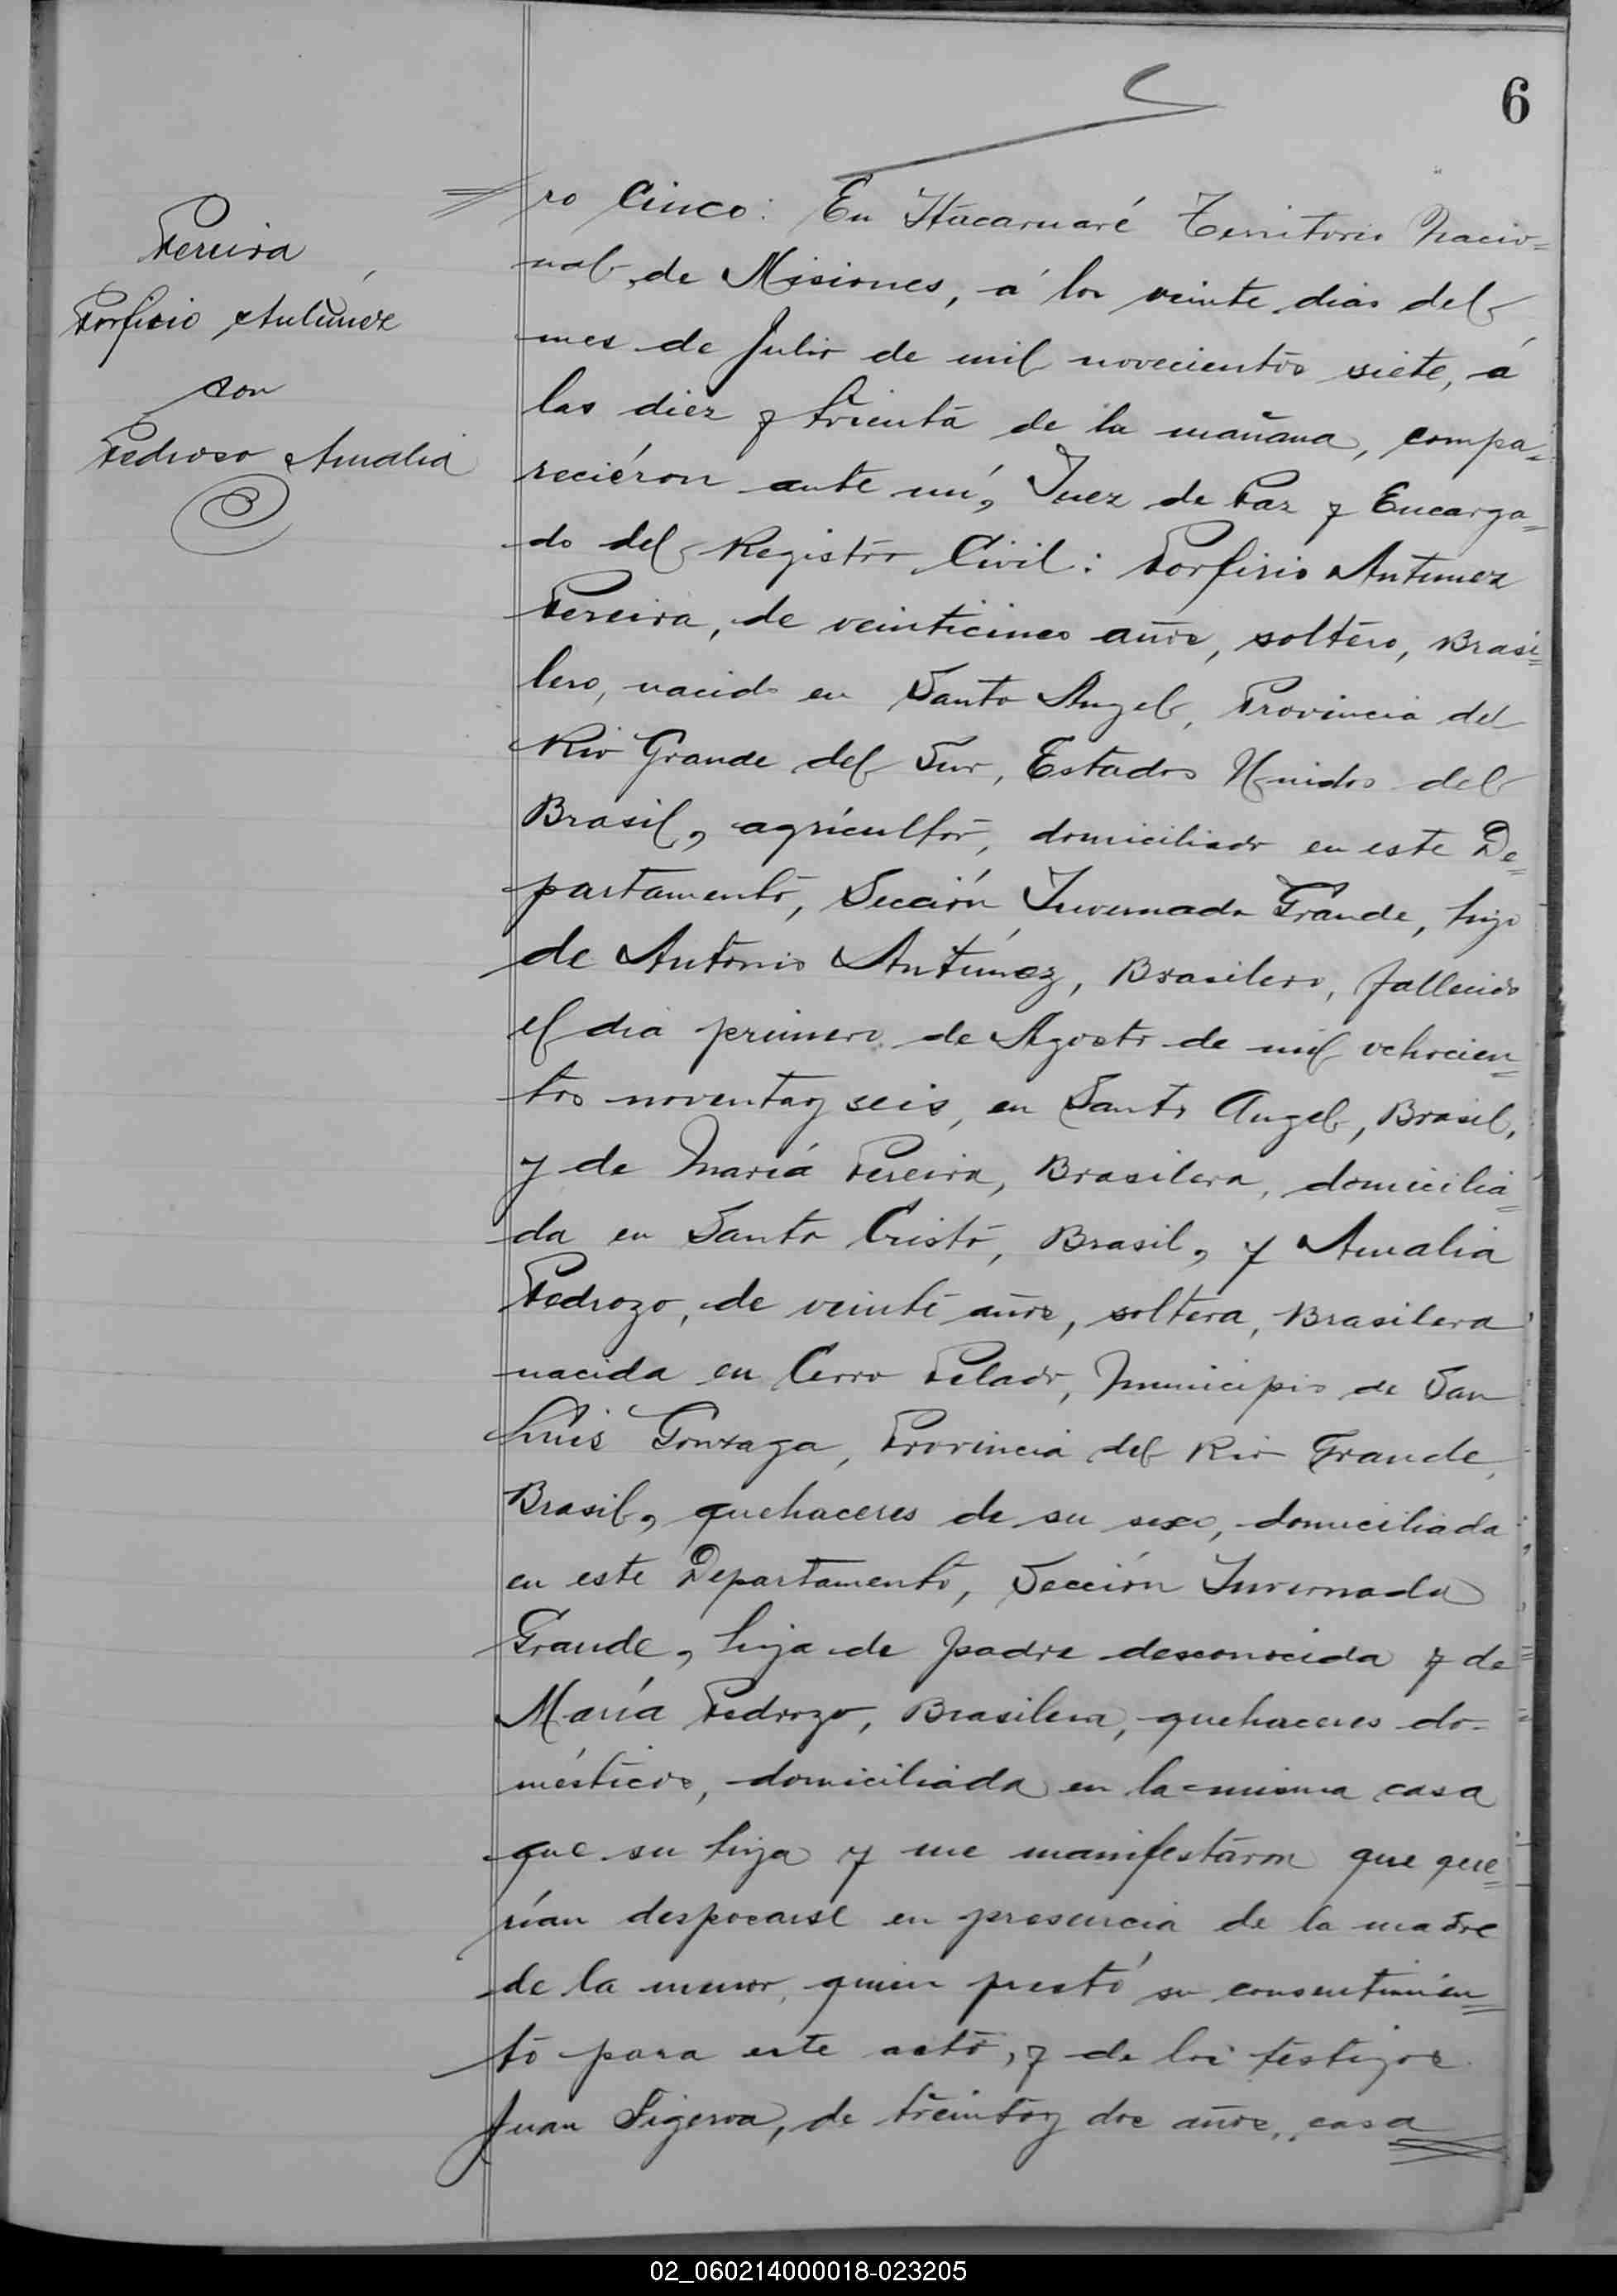 6
Pereira
Porfirio Antúnez
con
Pedroso Amalia
ro Cinco: En Itacaruaré Territorio Nacio=
nal de Misiones, á los veinte dias del
mes de Julio de mil novecientos siete, á
las diez y trienta de la mañana, compa=
reciéron ante mí, Juez de Paz y Encarga=
do del Registro Civil: Porfirio Antunez
Pereira, de veinticinco años, soltero, Brasi=
lero, nacido en Santo Angel, Provincia del
Rio Grande del Sur, Estados Unidos del
Brasil, agricultor, domiciliado en este De=
partamento, Sección Invernada Grande, hijo
de Antonio Antúnez, Brasilero, fallecido
el dia primero de Agosto de mil ochocien=
tos noventay seis, en Santo Angel, Brasil,
y de María Pereira, Brasilera, domicilia=
da en Santo Cristo, Brasil, y Amalia
Pedrozo, de veinte años, soltera, Brasilera
nacida en Cerro Pelado, Municipio de San
Luis Gonzaga, Provincia del Rio Grande,
Brasil, quehaceres de su sexo, domiciliada
en este Departamento, Sección Invernada
Grande, hija de padre desconocida y de
María Pedrozo, Brasilera, quehaceres do=
mésticos, domiciliada en la misma casa
que su hija y me manifestaron que que=
rían desposarse en presencia de la madre
de la menor, quien prestó su consentimien=
to para este acto, y de los testigos
Juan Figeroa, de treintay dos años, casa
02_060214000018-023205